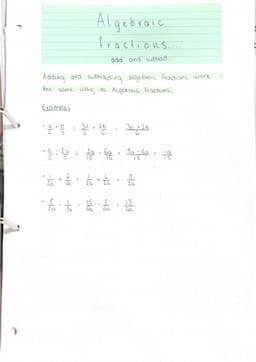 Algebraic
fractions
add and subtract
Adding and subtracting algebraic fractions work
the same way as Algebraic fractions.
Examples
- a/2 + b/3 = 3a/6 + 2b/6 =
- a/3 - 2a/5 = 5a/15 - 6a/15 = 5a-6a/15 = -a/15
- 1/2a + 2/a = 1/2a + 4/2a = 5/2a
- 5/2a - 1/3a = 15/6a - 2/6a = 13/6a